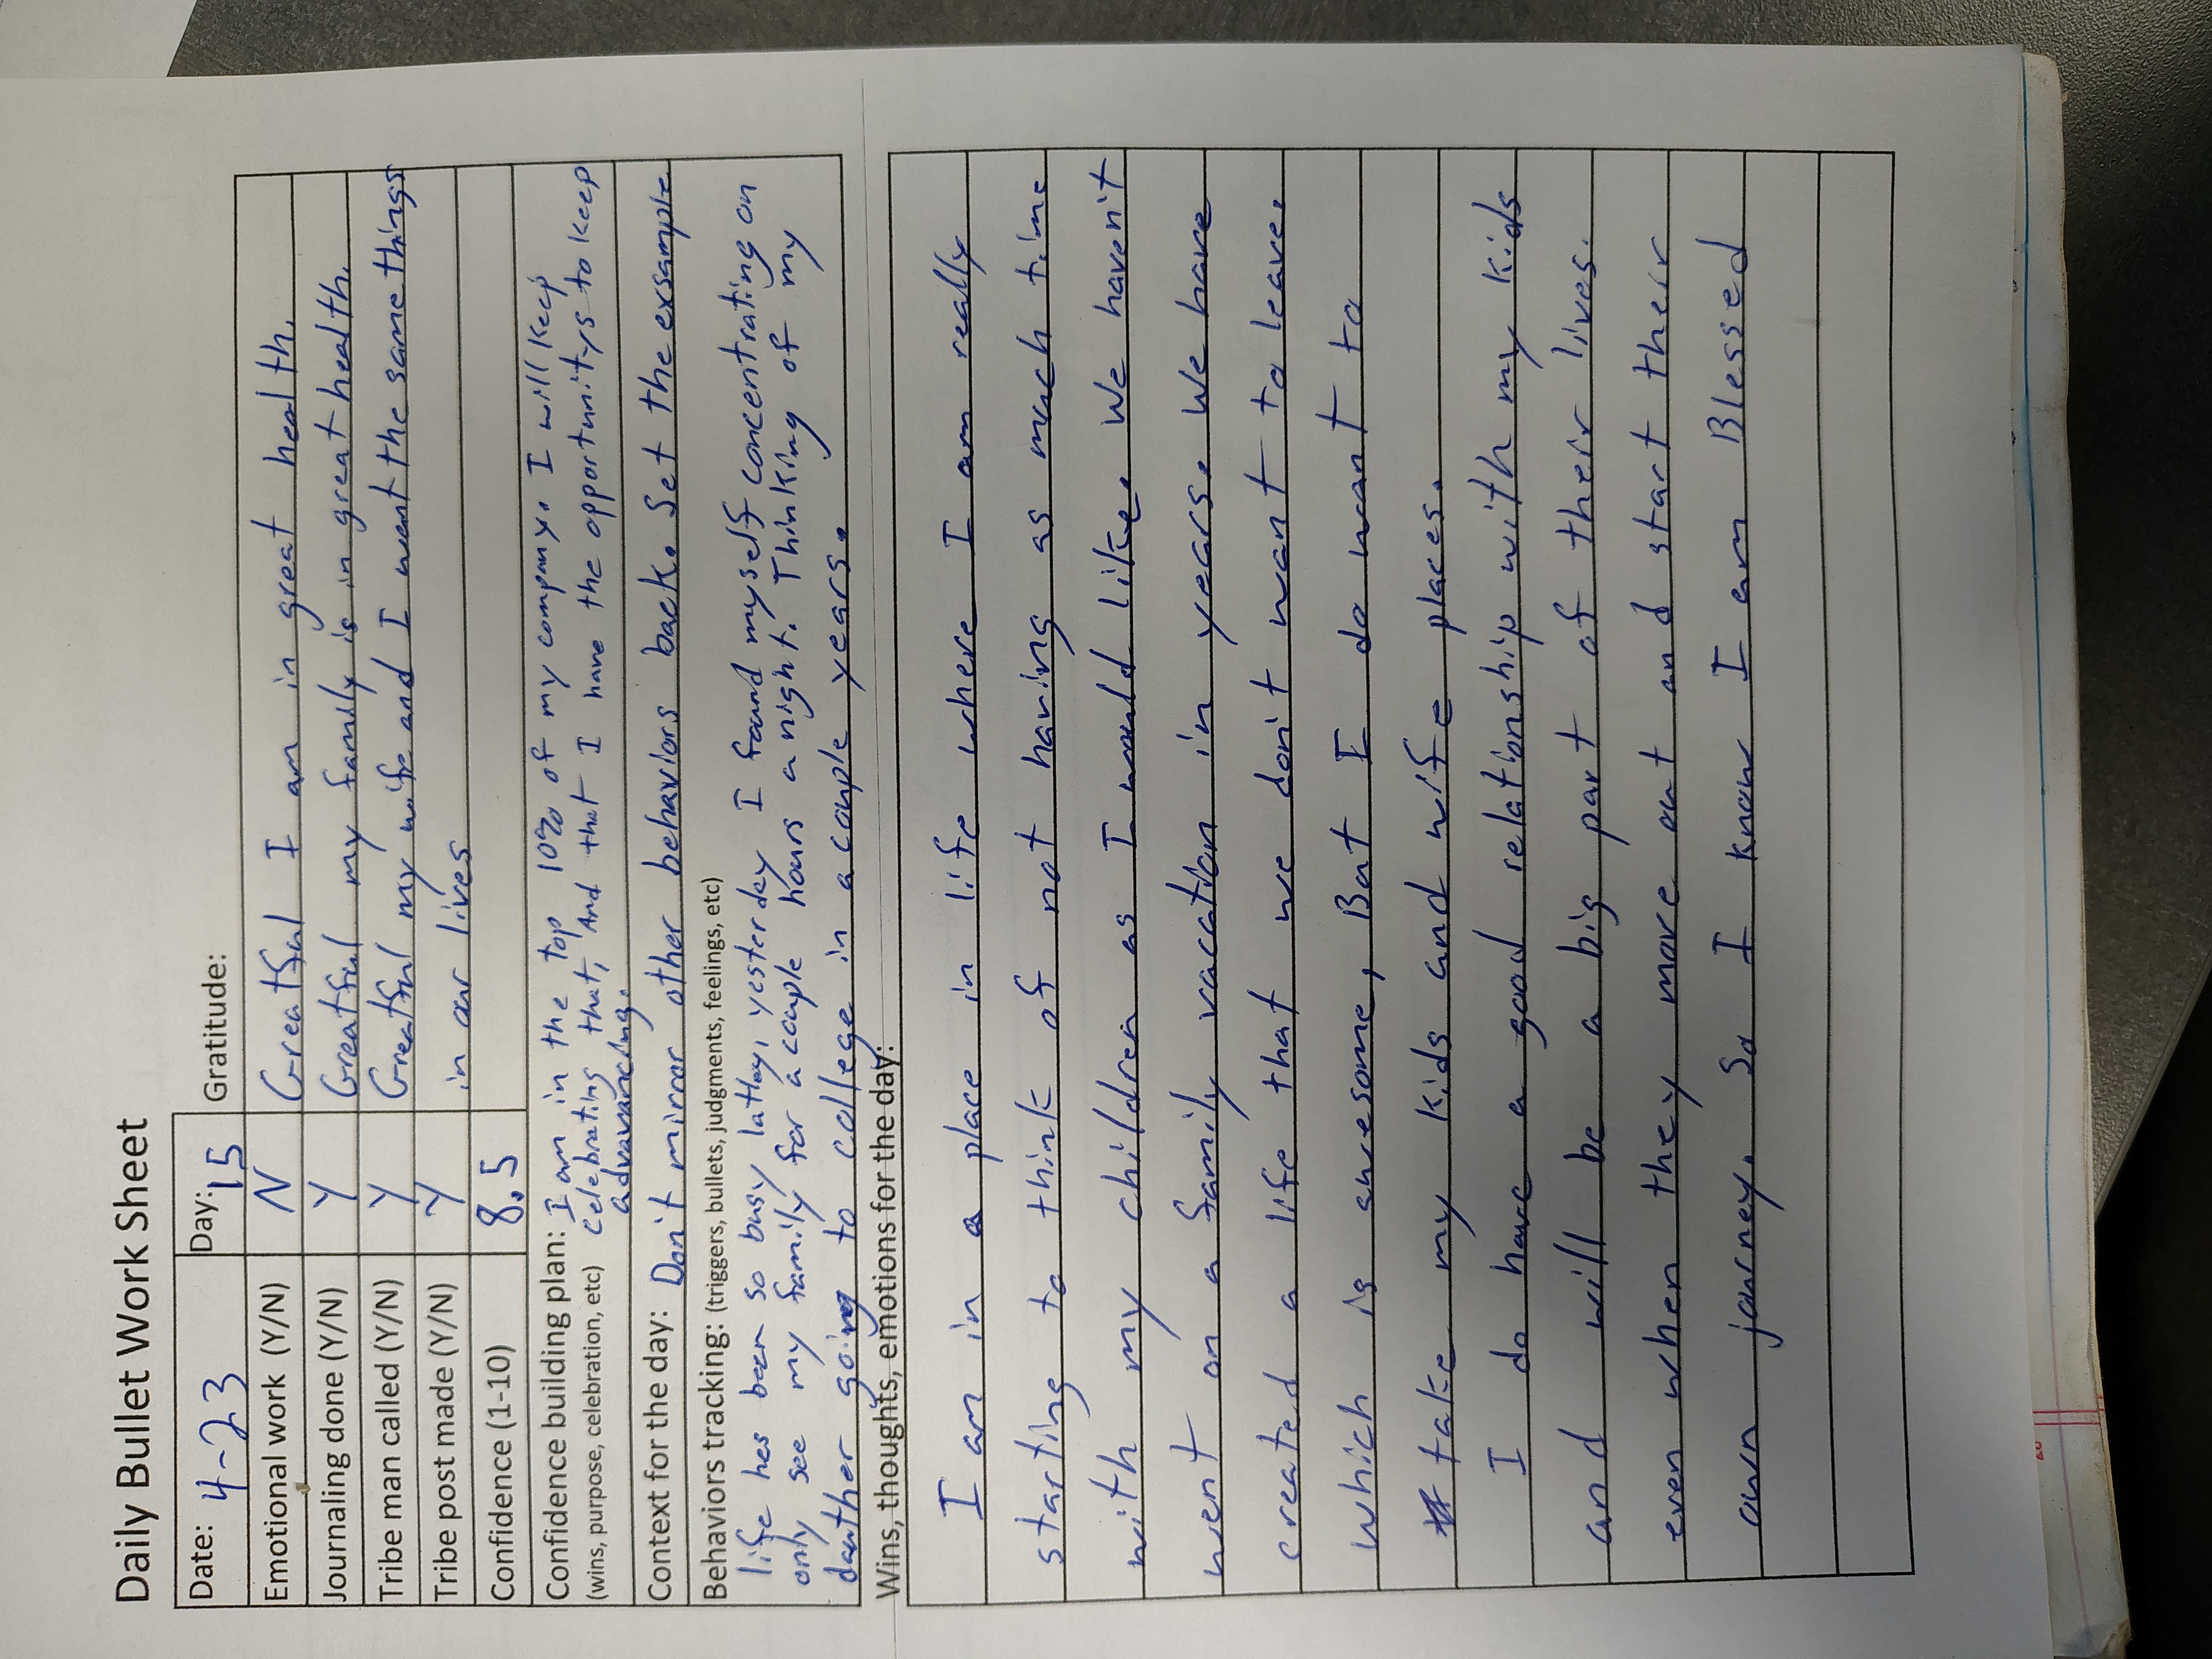 Daily Bullet Work Sheet
Date: 4-23 Day: 15 Gratitude:
Emotional work (Y/N) N Greatful I am in great health.
Journaling done (Y/N) Y Greatful my family is in great health.
Tribe man called (Y/N) Y Greatful my wife and I want the same things
Tribe post made (Y/N) Y in our lives
Confidence (1-10) 8.5
Confidence building plan: I am in the top 10% of my company. I will keep
(wins, purpose, celebration, etc) celebrating that, And that I have the opportunitys to keep
advancing.
Context for the day: Don't mirror other behaviors back. Set the exsample
Behaviors tracking: (triggers, bullets, judgments, feelings, etc)
life hes been so busy latley, yesterday I found myself concentrating on
only see my family for a couple hours a night. Thinking of my
dauther going to college in a couple years.
Wins, thoughts, emotions for the day:
I am in a place in life where I am really
starting to think of not having as much time
with my children as I would like. We haven't
went on a family vacation in years. We have
created a life that we don't want to leave.
which is awesome, But I do want to
take my kids and wife places.
I do have a good relationship with my kids
and will be a big part of their lives.
even when they move out and start their
own journey. So I know I am Blessed